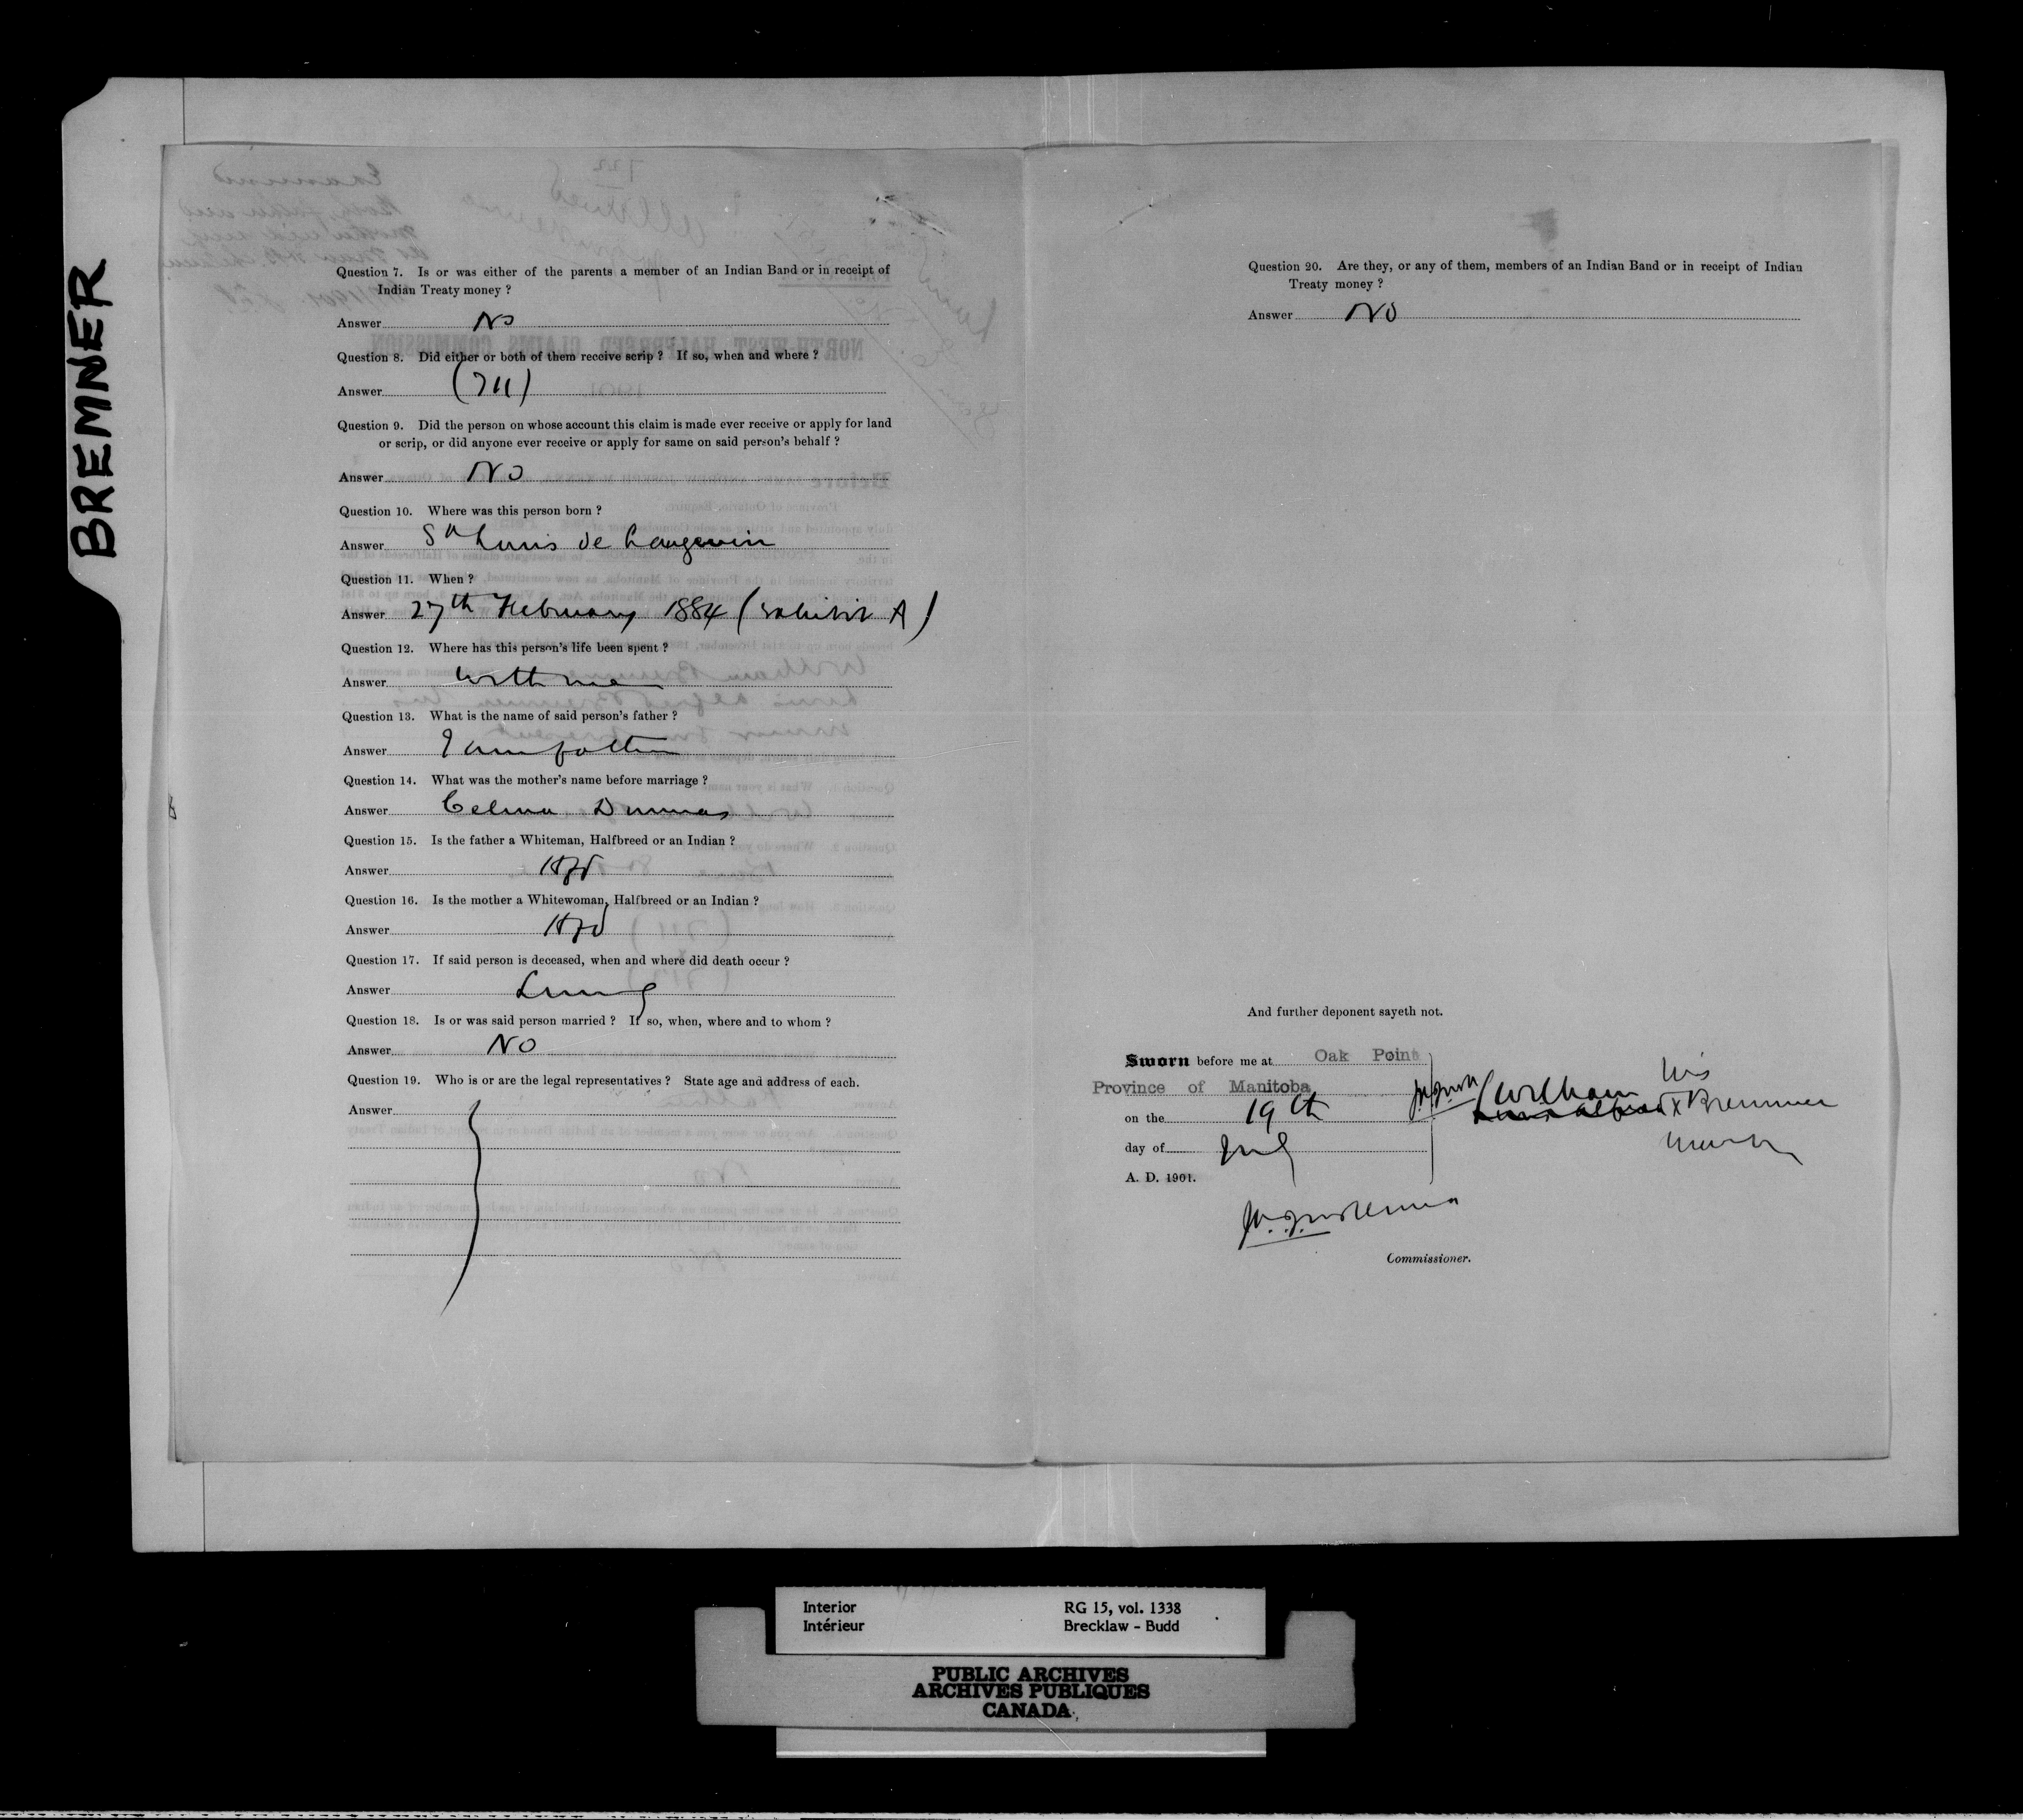 BREMNER
Question 7. Is or was either of the parents a member of an Indian Band or in receipt of
Indian Treaty money ?
Answer No
Question 8. Did either or both of them receive scrip ? If so, when and where ?
Answer (711)
Question 9. Did the person on whose account this claim is made ever receive or apply for land
or scrip, or did anyone ever receive or apply for same on said person's behalf ?
Answer No
Question 10. Where was this person born ?
Answer St Louis de Langevin
Question 11. When ?
Answer 27th February 1884 (Exhibit A)
Question 12. Where has this person's life been spent ?
Answer With me
Question 13. What is the name of said person's father ?
Answer I am father
Question 14. What was the mother's name before marriage ?
Answer Celina Dumas
Question 15. Is the father a Whiteman, Halfbreed or an Indian ?
Answer Hfd
Question 16. Is the mother a Whitewoman, Halfbreed or an Indian ?
Answer Hfd
Question 17. If said person is deceased, when and where did death occur ?
Answer Living
Question 18. Is or was said person married ? If so, when, where and to whom ?
Answer No
Question 19. Who is or are the legal representatives ? State age and address of each.
Answer
Question 20. Are they, or any of them, members of an Indian Band or in receipt of Indian
Treaty money ?
Answer No
And further deponent sayeth not.
Sworn before me at Oak Point
Province of Manitoba
on the 19th
day of July
A. D. 1901.
his
William X Bremner
mark
Commissioner.
Interior
Intérieur
RG 15, vol. 1338
Brecklaw - Budd
PUBLIC ARCHIVES
ARCHIVES PUBLIQUES
CANADA